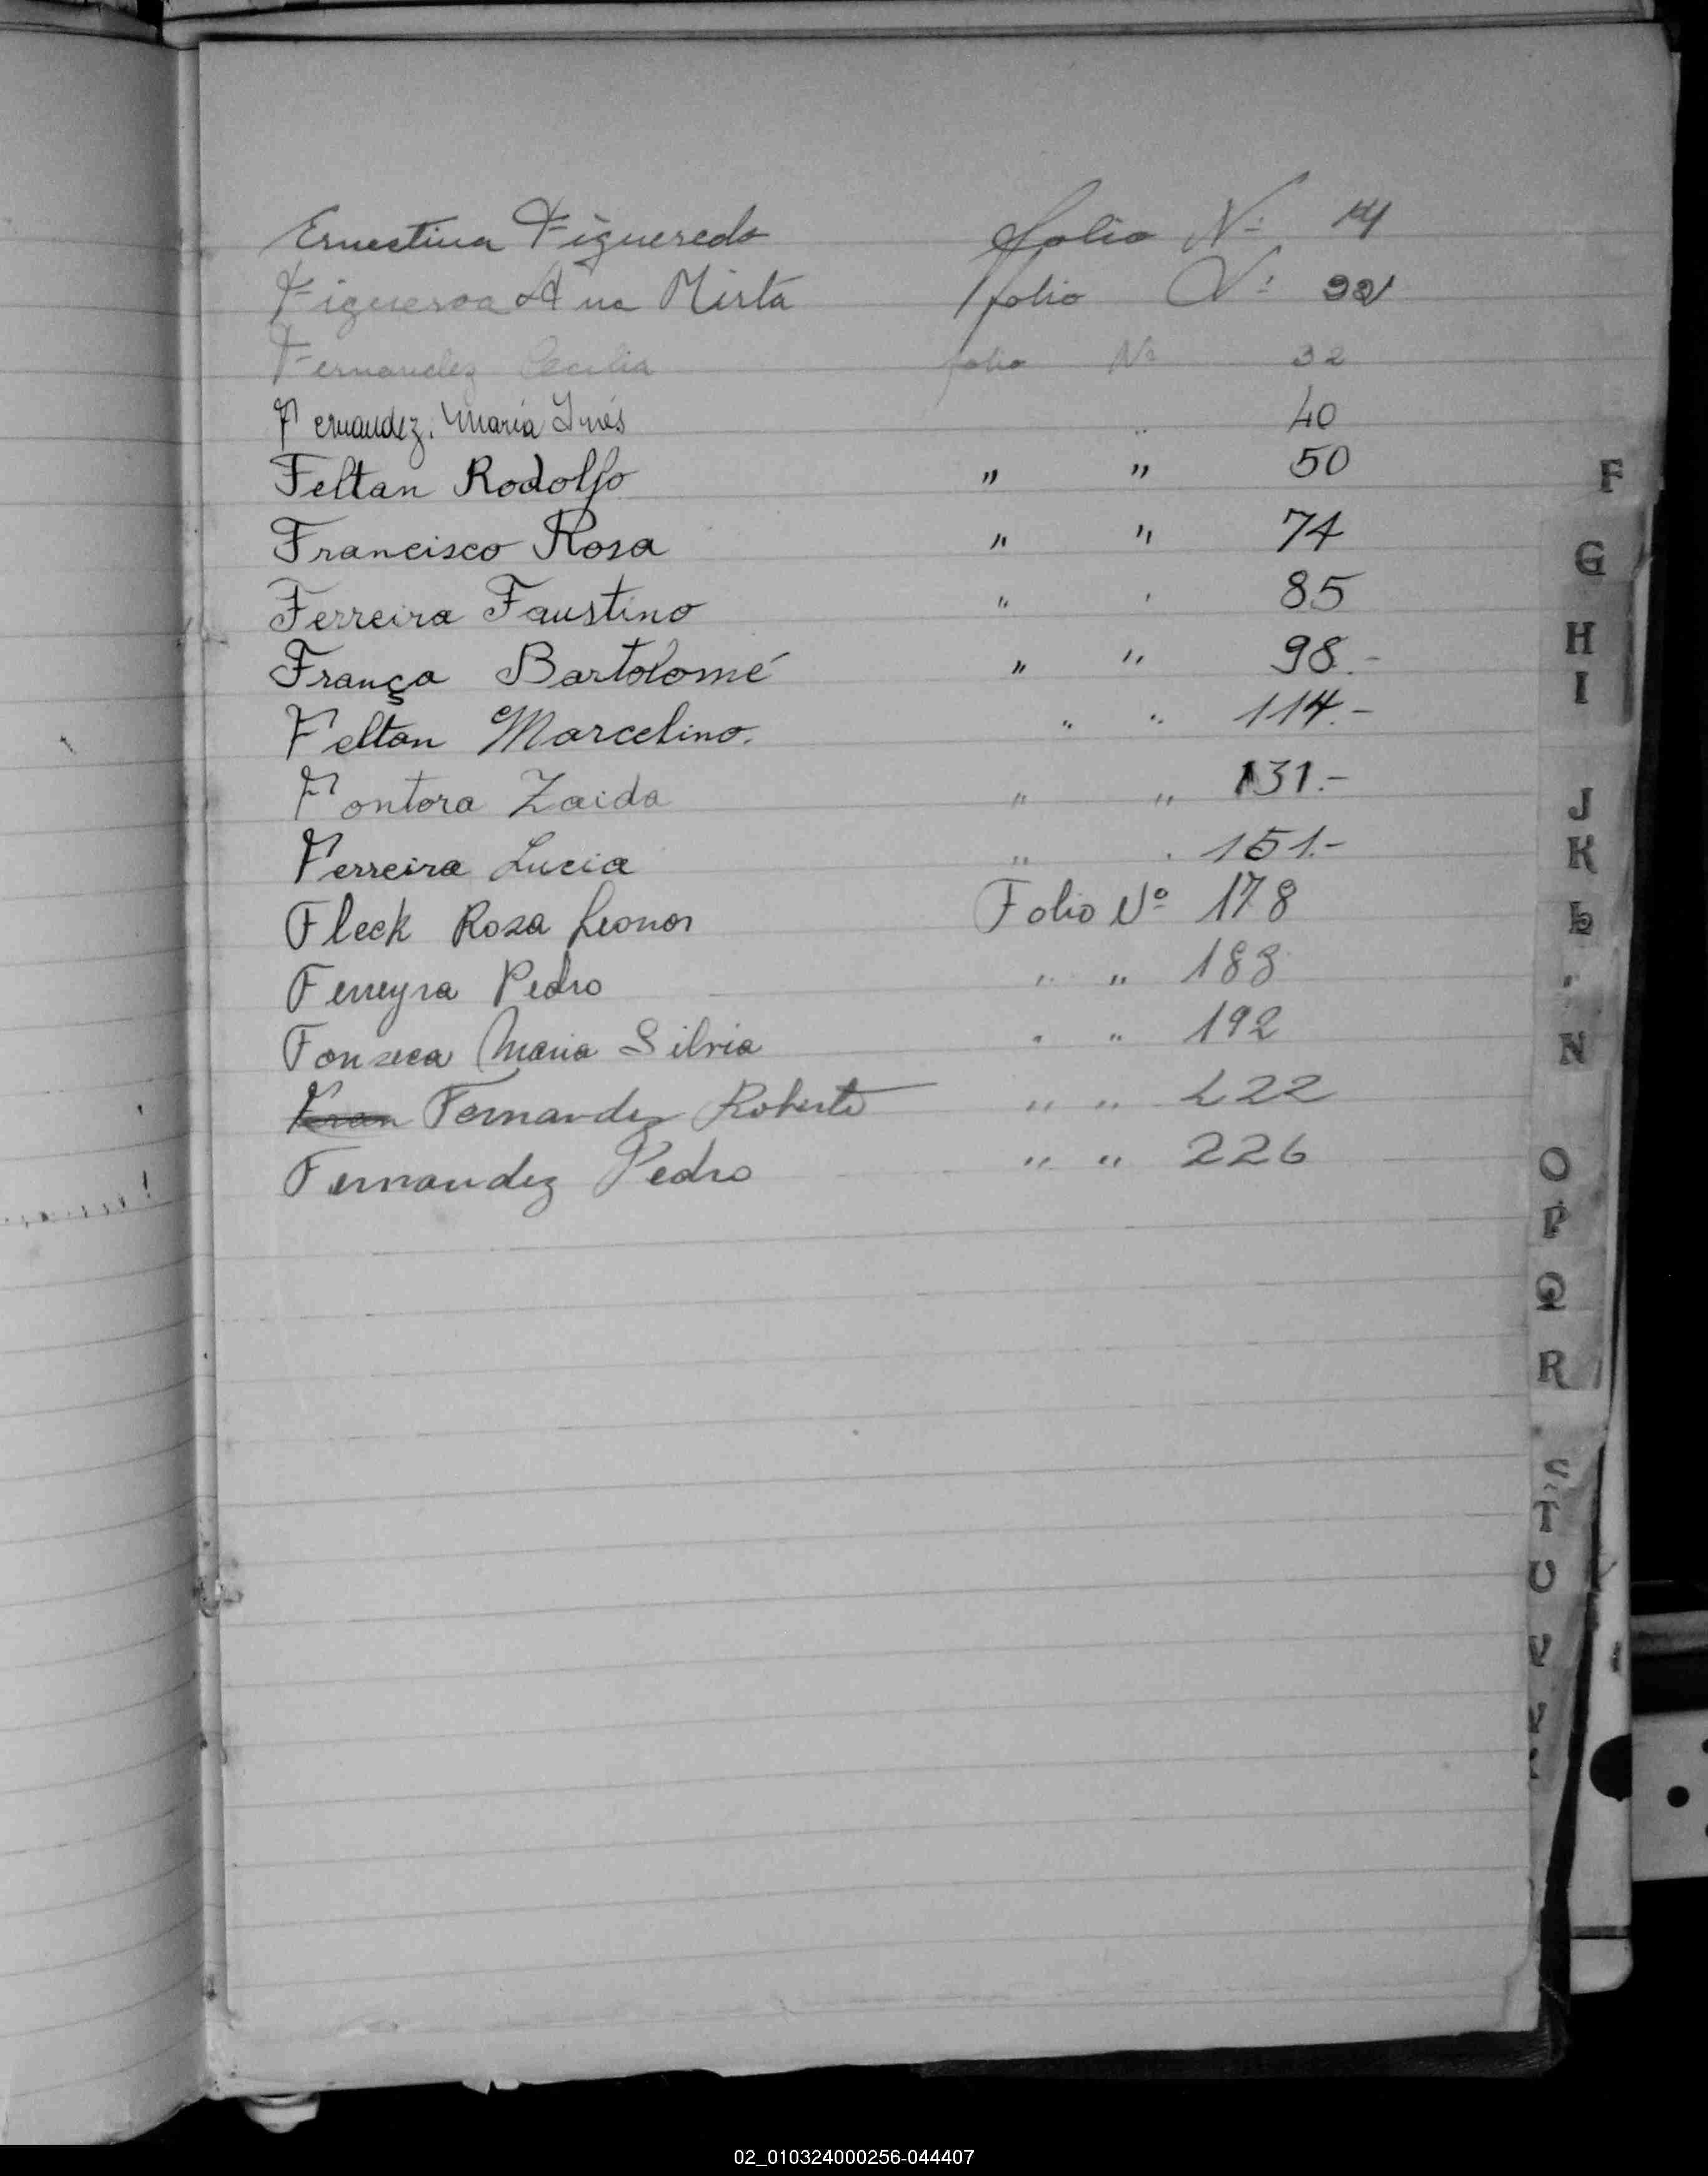 Ernestina Figueredo folio Nº 14
Figueroa Ana Mirta folio Nº
Fernandez Cecilia folio Nº 32
Fernandez. María Inés " 40
Feltan Rodolfo " " 50
Francisco Rosa " " 74
Ferreira Faustino " " 85
França Bartolomé " " 98.-
Feltan Marcelino. " " 114.-
Fontora Zaida " " 131.-
Ferreira Lucia " " 151.-
Fleck Rosa Leonor Folio Nº 178
Ferreyra Pedro " " 188
Fonseca Maria Silvia " " 192
Fran Fernandez Roberto " " 222
Fernandez Pedro " " 226
F
G
H
I
J
K
L
N
O
P
Q
R
S
T
U
V
02_010324000256-044407